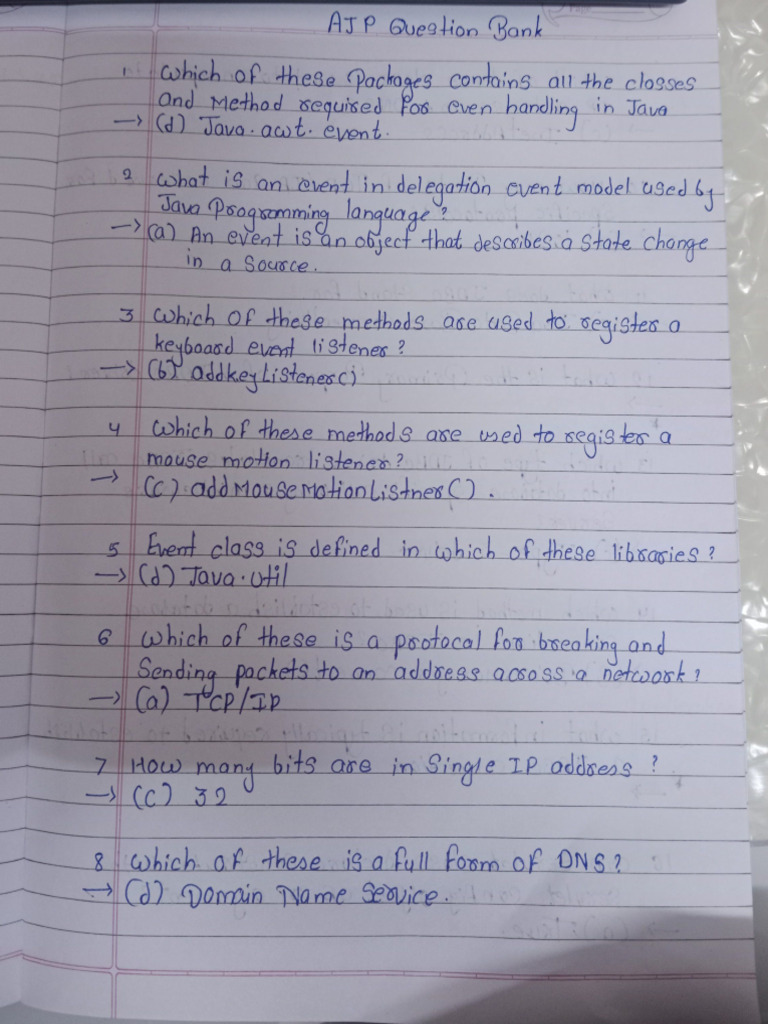 AJP Question Bank
1 Which of these Packages contains all the classes
and Method required for even handling in Java
→ (d) Java.awt.event.
2 what is an event in delegation event model used by
Java Programming language?
→ (a) An event is an object that describes a state change
in a source.
3 Which of these methods are used to register a
keyboard event listener?
→ (b) addkeyListener()
4 Which of these methods are used to register a
mouse motion listener?
→ (c) addMouseMotionListner().
5 Event class is defined in which of these libraries?
→ (d) Java.util
6 Which of these is a protocal for breaking and
Sending packets to an address across a network?
→ (a) TCP/IP
7 How many bits are in Single IP address?
→ (c) 32
8 Which of these is a full form of DNS?
→ (d) Domain Name Service.